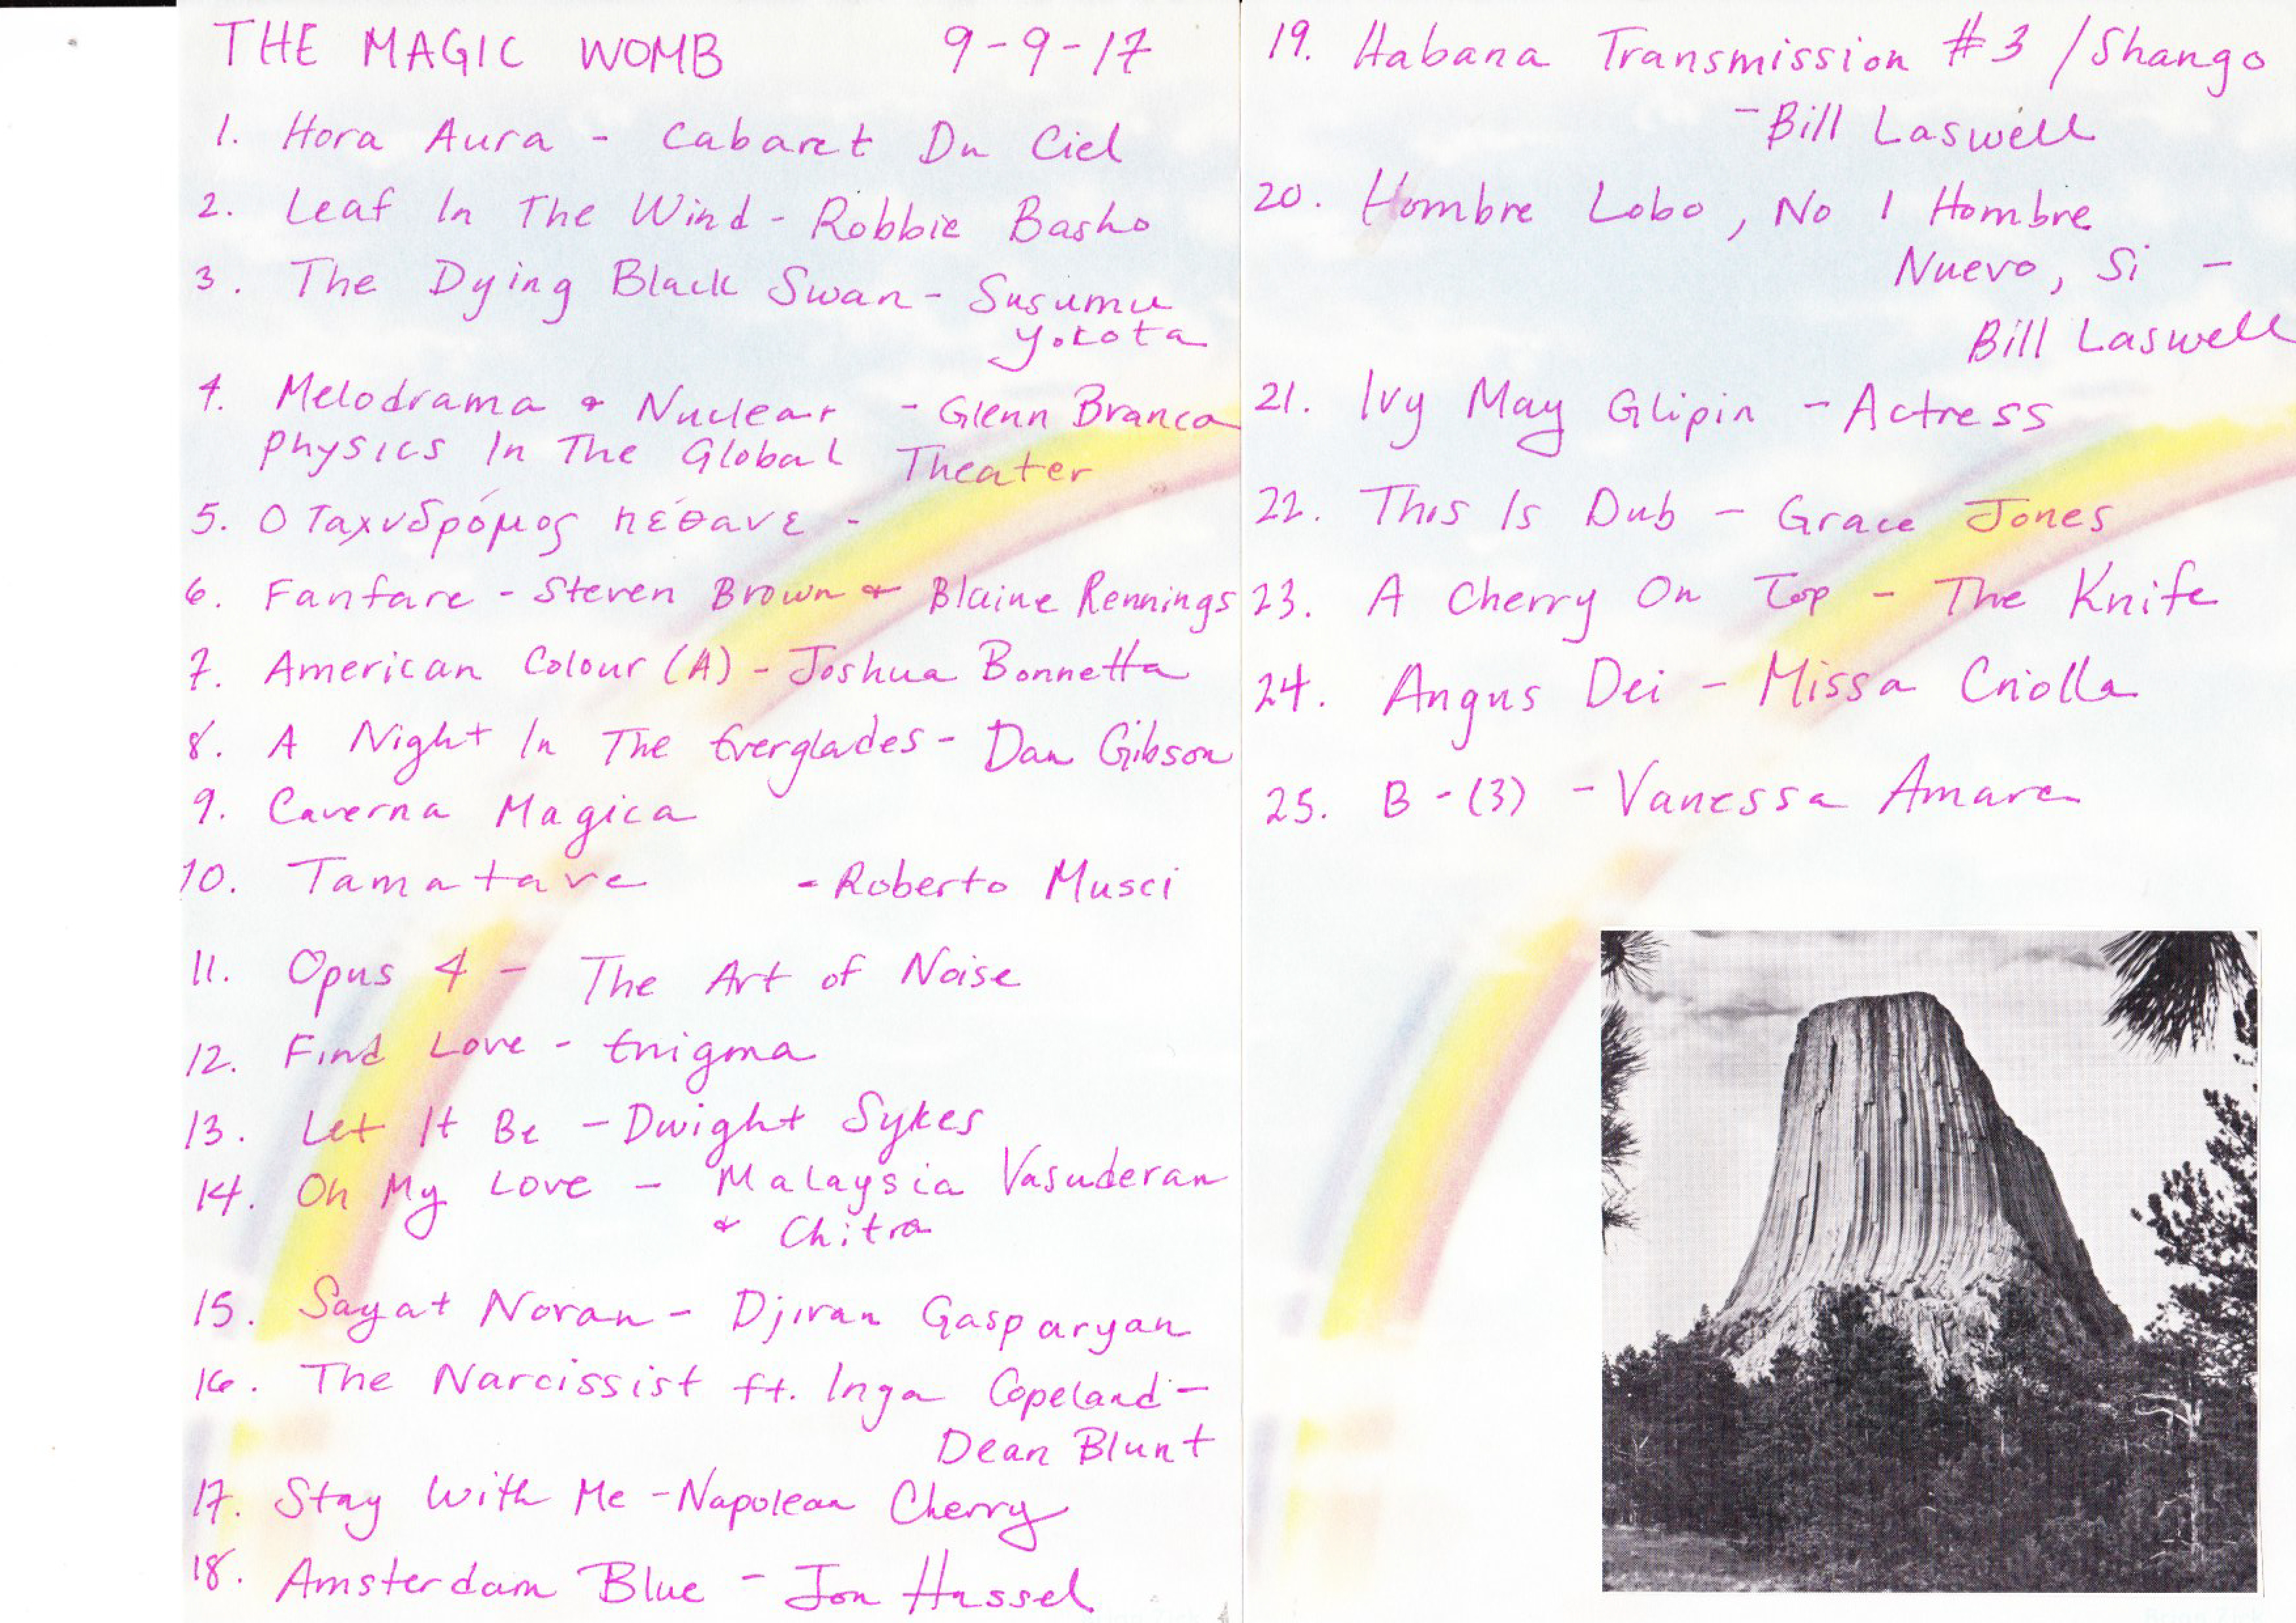 THE MAGIC WOMB 9-9-17
1. Hora Aura - Cabaret Du Ciel
2. Leaf In The Wind - Robbie Basho
3. The Dying Black Swan - Susumu
Yokota
4. Melodrama & Nuclear - Glenn Branca
Physics In The Global Theater
5. Ο Ταχυδρόμος πέθανε -
6. Fanfare - Steven Brown & Blaine Rennings
7. American Colour (A) - Joshua Bonnetta
8. A Night In The Everglades - Dan Gibson
9. Caverna Magica
10. Tamatave - Roberto Musci
11. Opus 4 - The Art of Noise
12. Find Love - Enigma
13. Let It Be - Dwight Sykes
14. Oh My Love - Malaysia Vasuderan
& Chitra
15. Sayat Noran - Djivan Gasparyan
16. The Narcissist ft. Inga Copeland -
Dean Blunt
17. Stay With Me - Napolean Cherry
18. Amsterdam Blue - Jon Hassel
19. Habana Transmission #3 / Shango
- Bill Laswell
20. Hombre Lobo, No / Hombre
Nuevo, Si -
Bill Laswell
21. Ivy May Glipin - Actress
22. This Is Dub - Grace Jones
23. A Cherry On Top - The Knife
24. Angus Dei - Missa Criolla
25. B - (3) - Vanessa Amara